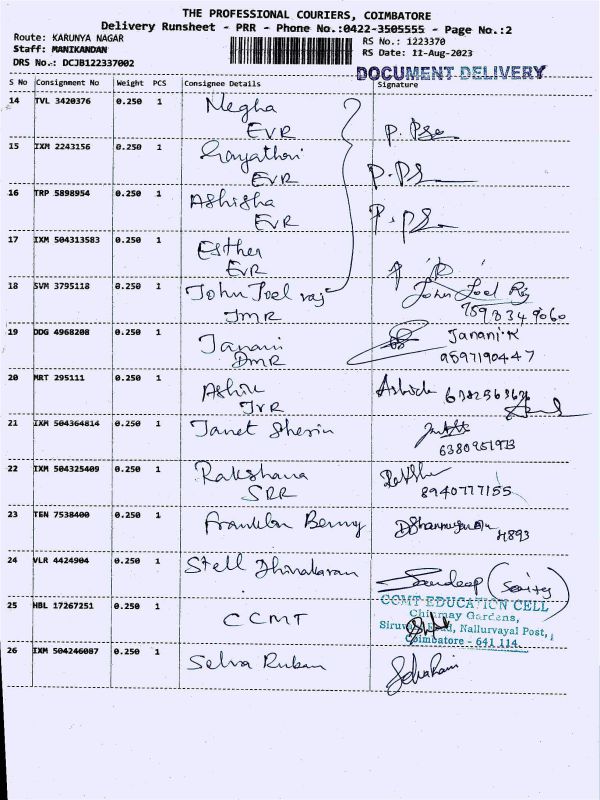 THE PROFESSIONAL COURIERS, COIMBATORE
Delivery Runsheet - PRR - Phone No.:0422-3505555 - Page No.:2
Route: KARUNYA NAGAR
RS No.: 1223370
Staff: MANIKANDAN
RS Date: 11-Aug-2023
DRS No.: DCJB122337002
DOCUMENT DELIVERY
S No Consignment No Weight PCS Consignee Details Signature
14 TVL 3420376 0.250 1 Megha
EVR
15 IXM 2243156 0.250 1 Gayathri
EVR
16 TRP 5898954 0.250 1 Ashisha
EVR
17 IXM 504313583 0.250 1 Esther
EVR
18 SVM 3795118 0.250 1 John Joel raj John Joel Raj
JMR 7598349060
19 DDG 4968208 0.250 1 Janani Janani.K
DMR 9597190447
20 MRT 295111 0.250 1
JVR
21 IXM 504364814 0.250 1 Janet Sherin
6380951973
22 IXM 504325409 0.250 1 Rakshana
SRR 8940777155
23 TEN 7538400 0.250 1 Franklin Benny
4893
24 VLR 4424904 0.250 1 Stell Dhinakaran Sandeep
25 HBL 17267251 0.250 1 CCMT
CCMT EDUCATION CELL
Chinmay Gardens,
Siruvani Road, Nallurvayal Post,
Coimbatore - 641 114.
26 IXM 504246087 0.250 1 Selva Ruban